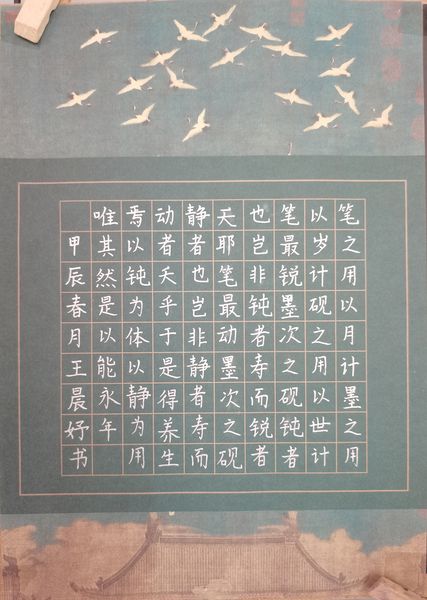 笔之用以月计墨之用
以岁计砚之用以世计
笔最锐墨次之砚钝者
也岂非钝者寿而锐者
夭耶笔最动墨次之砚
静者也岂非静者寿而
动者夭乎于是得养生
焉以钝为体以静为用
唯其然是以能永年
甲辰春月王晨妤书